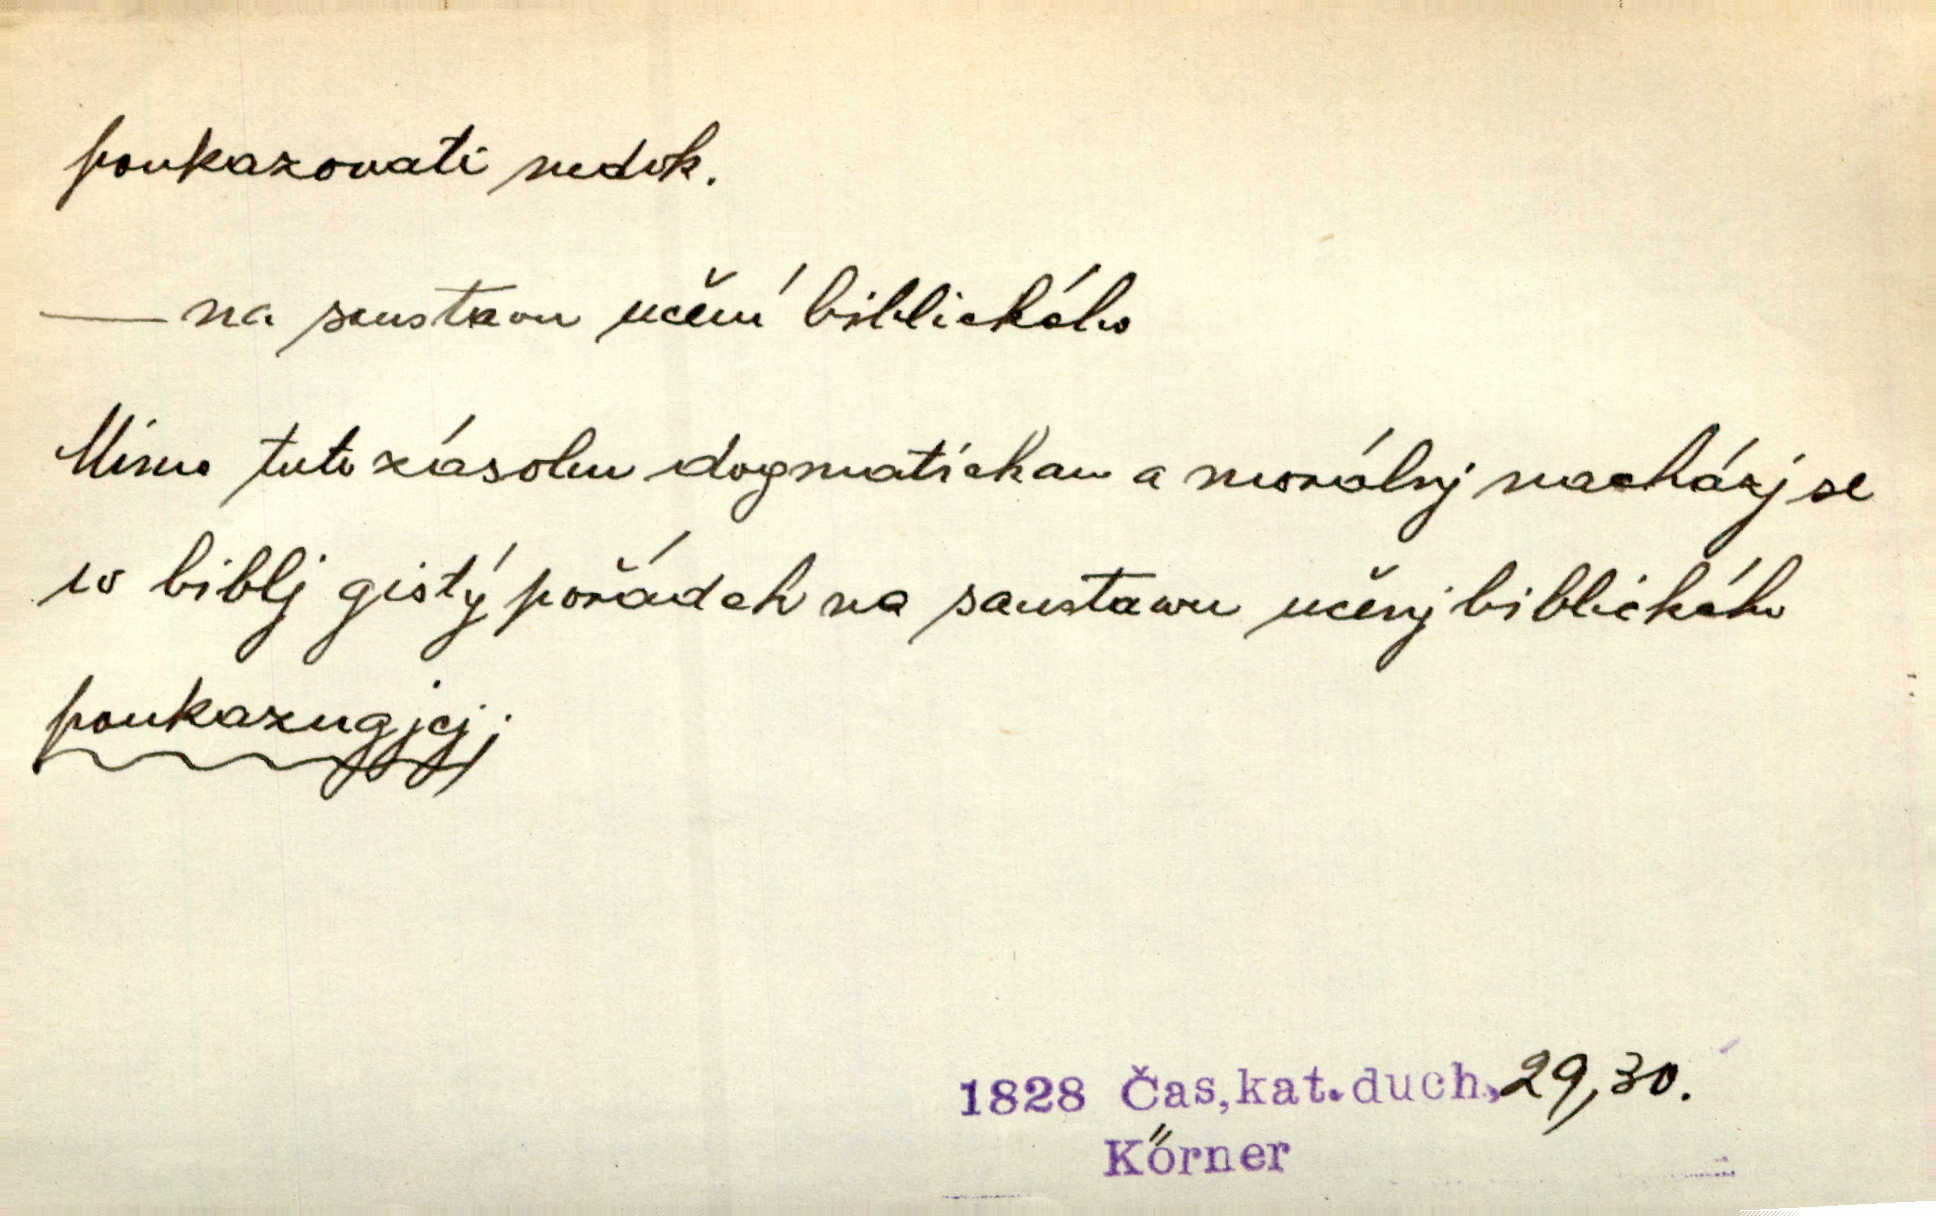 poukazovati nedok.
— na soustavu učení biblického
Mimo tuto zásobu dogmatickau a morálnj nacházj se
w biblj gistý pořádek na saustawu učenj biblického
poukazugjcj;
1828 Čas,kat.duch, 29,30.
Körner